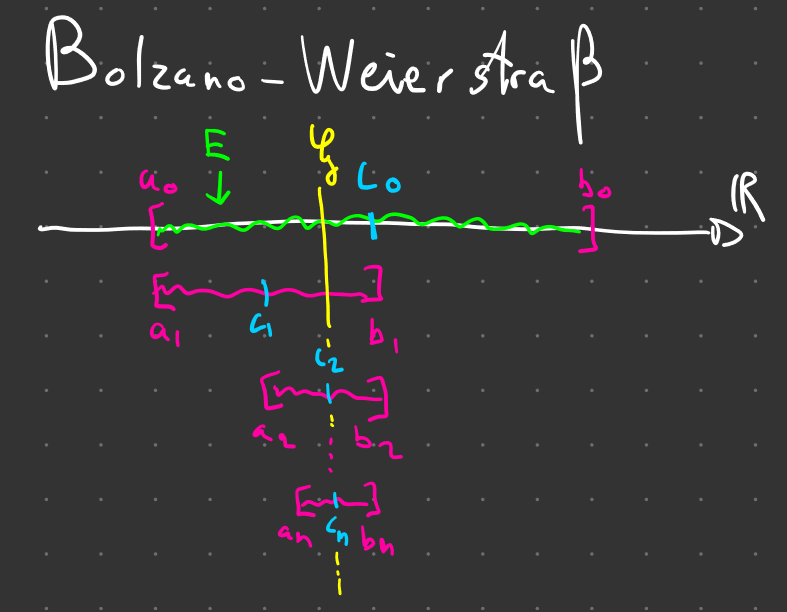 Bolzano-Weierstraß
E
a₀ c₀ b₀ ℝ
a₁ c₁ b₁
c₂
a₂ b₂
aₙ cₙ bₙ